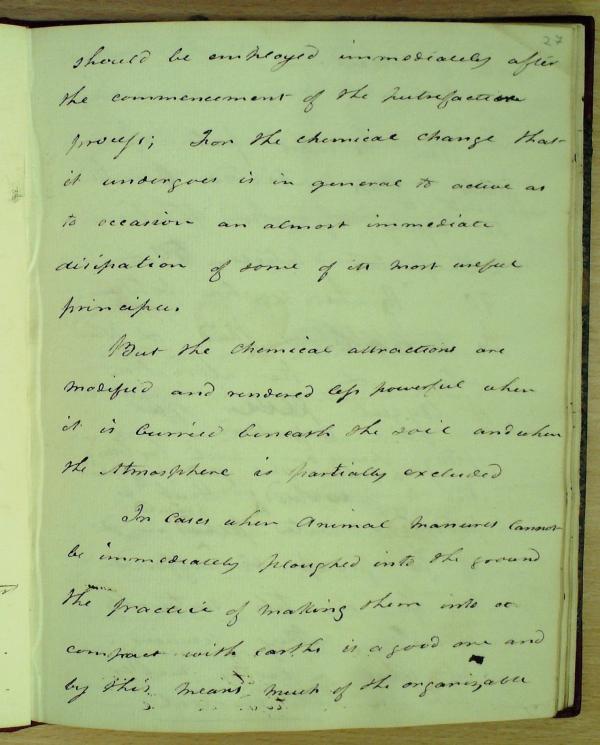 27
should be employed immediately after
the commencement of the putrefactive
process; For the chemical change that
it undergoes is in general to active as
to occasion an almost immediate
disipation of some of its most useful
principles
But the chemical attractions are
modified and rendered less powerful when
it is burried beneath the soil and when
the Atmosphere is partially excluded
In Cases when Animal manures cannot
be immediately ploughed into the ground
the practice of making them into a
compact with earths is a good one and
by this means much of the organizable